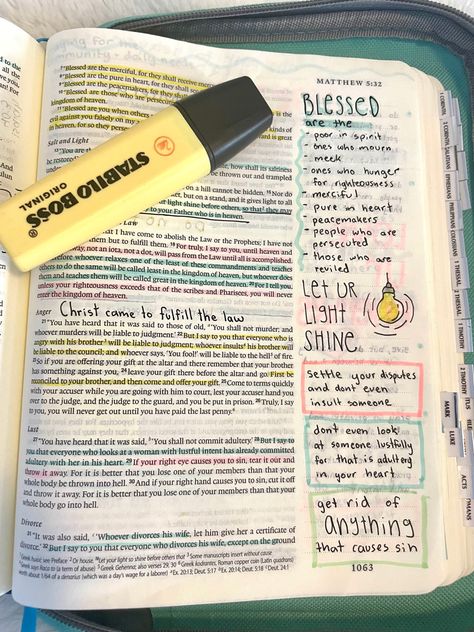 MATTHEW 5:32
7 "Blessed are the merciful, for they shall receive mercy.
8 "Blessed are the pure in heart, for they shall see
9 "Blessed are the peacemakers, for they shall
10 "Blessed are those who are persecuted
kingdom of heaven.
11 "Blessed are you when others
evil against you falsely on my
in heaven, for so they persecuted
kinds of
is great
Salt and Light
13 "You are
be restored
how shall its saltiness
thrown out and trampled
on a hill cannot be hidden. 15 Nor do
but on a stand, and it gives light to all
light shine before others, so that they may
to your Father who is in heaven.
Law
I have come to abolish the Law or the Prophets; I have not
but to fulfill them. 18 For truly, I say to you, until heaven and
not an iota, not a dot, will pass from the Law until all is accomplished.
whoever relaxes one of the least of these commandments and teaches
others to do the same will be called least in the kingdom of heaven, but whoever does
them and teaches them will be called great in the kingdom of heaven. 20 For I tell you,
unless your righteousness exceeds that of the scribes and Pharisees, you will never
enter the kingdom of heaven.
Anger Christ came to fulfill the law
21 "You have heard that it was said to those of old, 'You shall not murder; and
whoever murders will be liable to judgment.' 22 But I say to you that everyone who is
angry with his brother will be liable to judgment; whoever insults his brother will
be liable to the council; and whoever says, 'You fool!' will be liable to the hell of fire.
23 So if you are offering your gift at the altar and there remember that your brother
has something against you, 24 leave your gift there before the altar and go. First be
reconciled to your brother, and then come and offer your gift. 25 Come to terms quickly
with your accuser while you are going with him to court, lest your accuser hand you
over to the judge, and the judge to the guard, and you be put in prison. 26 Truly, I say
to you, you will never get out until you have paid the last penny.
Lust
27 "You have heard that it was said, 'You shall not commit adultery.' 28 But I say to
you that everyone who looks at a woman with lustful intent has already committed
adultery with her in his heart. 29 If your right eye causes you to sin, tear it out and
throw it away. For it is better that you lose one of your members than that your
whole body be thrown into hell. 30 And if your right hand causes you to sin, cut it off
and throw it away. For it is better that you lose one of your members than that your
whole body go into hell.
Divorce
31 "It was also said, 'Whoever divorces his wife, let him give her a certificate of
divorce.' 32 But I say to you that everyone who divorces his wife, except on the ground
1063
STABILO BOSS
ORIGINAL
BLESSED
are the
- poor in spirit
- ones who mourn
- meek
- ones who hunger
for righteousness
- merciful
- pure in heart
- peacemakers
- people who are
persecuted
- those who are
reviled
LET UR
LIGHT
SHINE
Settle your disputes
and don't even
insult someone
don't even look
at someone lustfully
for that is adultery
in your heart
get rid of
ANYTHING
that causes sin
MARK
LUKE
ACTS
ROMANS